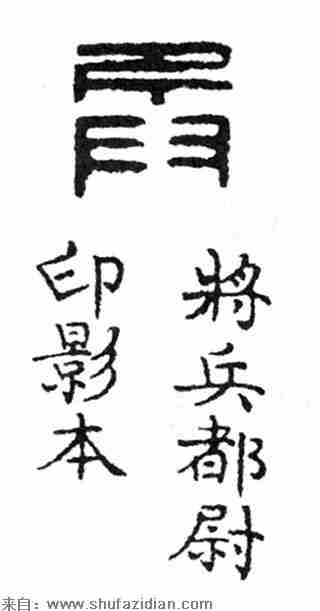 將兵都尉
印影本
来自：www.shufazidian.com